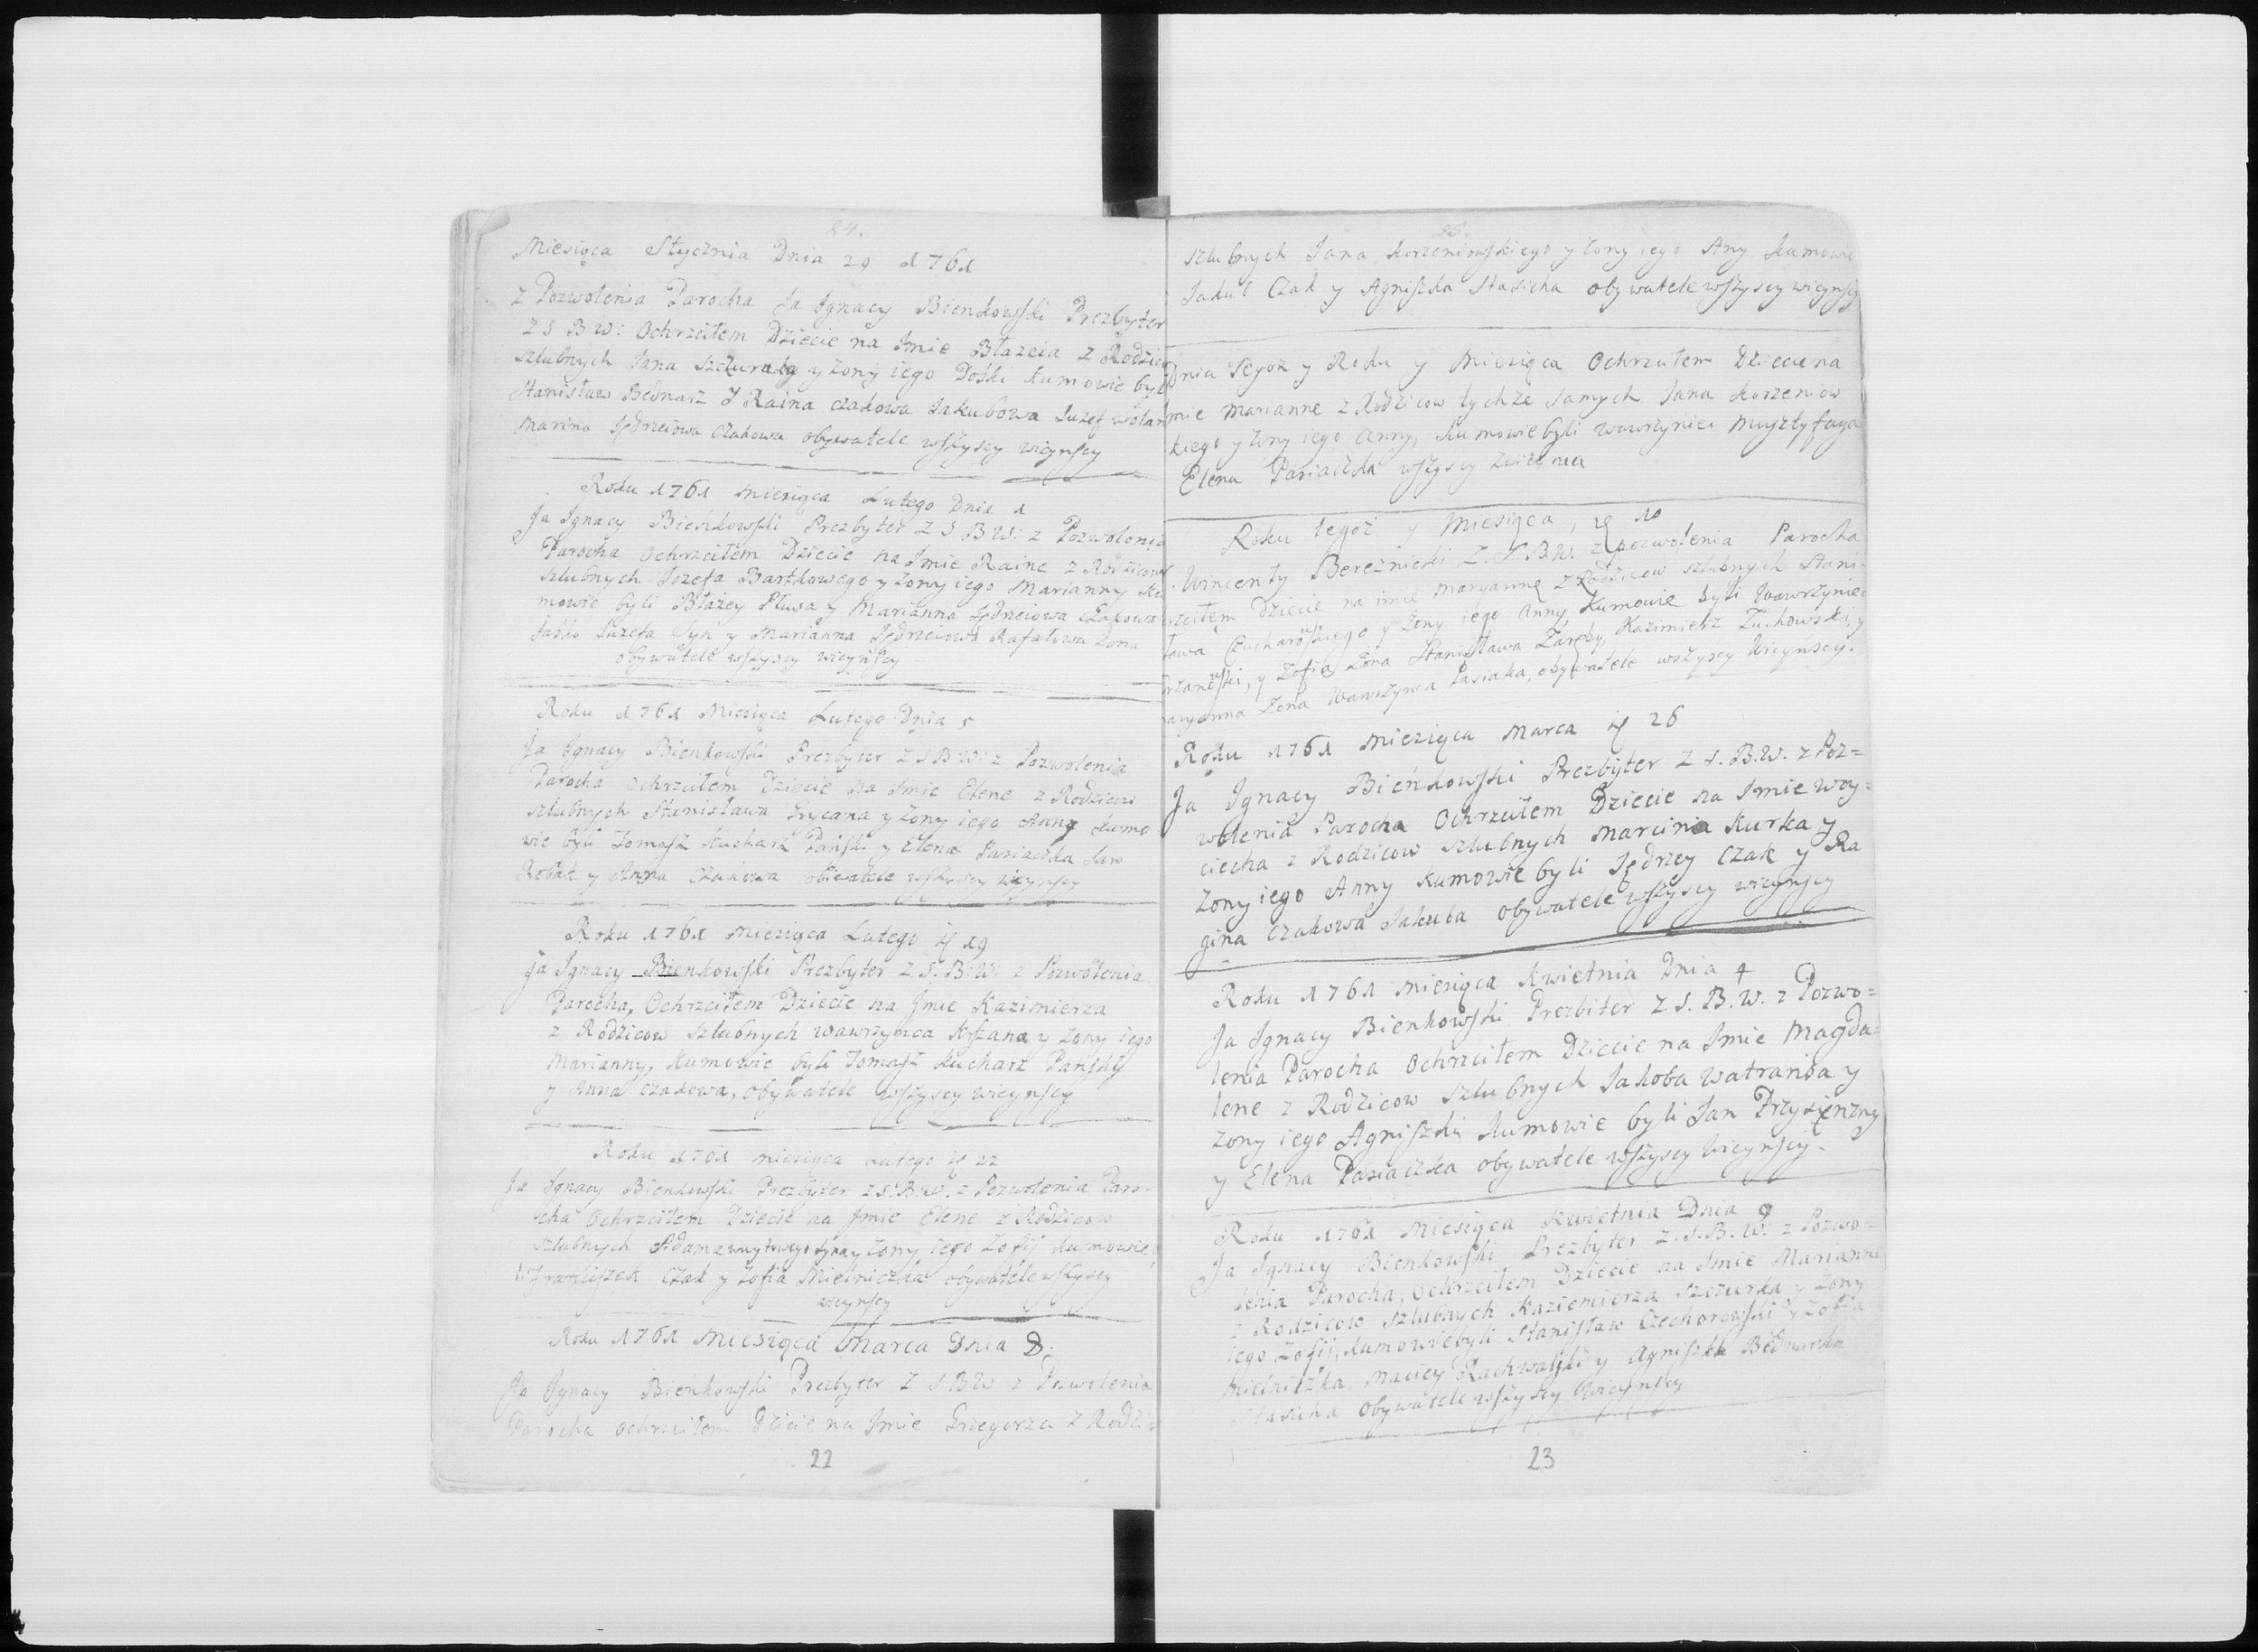 24.
Miesiąca Stycznia Dnia 29 1761
Z Pozwolenia Parocha Ja Ignacy Bienkowski Prezbyter
Z S B W: Ochrzciłem Dziecie na Imie Błazeia z Rodzico
szlubnych Jana y Zony iego Doski kumowie byli
Stanisław Bednarz Y Raina czakowa Jakubowa Juzef
Marina Jędrzeiowa Czakowa obywatele wszyscy wicynscy
Roku 1761 miesiąca Lutego Dnia 1
Ja Ignacy Bieńkowski Prezbyter Z S B W: z Pozwolenia
Parocha Ochrzciłem Dziecie na Imie Raine z Rodzicow
szlubnych Jozefa Bartkowego y Zony iego Marianny ku
mowie byli Błazey Plusa y Marianna Jędrzeiowa Czakowa
Juzefa Syn y Marianna Jędrzeiowa Rafałowa Zona
obywatele wszyscy wicynscy
Roku 1761 Miesiąca Lutego Dnia 5
Ja Ignacy Bienkowski Prezbyter Z S B W: z Pozwolenia
Parocha Ochrzciłem Dziecie na Imie Elene z Rodzicow
szlubnych Stanisława Grycana y Zony iego Anny kumo
wie byli Tomasz Kucharz Pański y Elena Pasiaczka Jan
Robak y Anna Czakowa obiwatele wszyscy wicynscy
Roku 1761 miesiąca Lutego 19
Ja Ignacy Bienkowski Prezbyter Z.S.B.W. z Pozwolenia
Parocha, Ochrzciłem Dziecie na Imie Kazimierza
z Rodzicow szlubnych wawrzynca Krszana y Zony iego
Marianny, kumowie byli Tomasz Kucharz Panski
y Anna czakowa, obywatele wszyscy wicynscy
Roku 1761 miesiąca Lutego 22
Ja Ignacy Bienkowski Prezbyter Z S. B. W. z Pozwolenia Paro-
cha Ochrzciłem Dziecie na Imie Elene z Rodzicow
szlubnych Adama wuytowego syna y Zony iego Zofij kumowie
Franciszek Czak y Zofia Mielniczka obywatele wszyscy
wicynscy
Roku 1761 Miesiąca Marca Dnia 8.
Ja Ignacy Bieńkowski Prezbyter Z S B W z Pozwolenia
Parocha ochrzciłem Dziecie na Imie Grzegorza Z Rodzi-
22
szlubnych Jana Korzeniowskiego y Zony iego Any kumowie
Jakub Czak y Agniszka Stasicha obywatele wszyscy wicynscy
Dnia Tegoz y Roku y Miesiąca Ochrzciłem Dziecie na
Imie Marianne z Rodzicow tychze samych Jana Korzeniow
kiego y Zony iego Anny, kumowie byli wawrzyniec
Elena Pasiaczka wszyscy zwicynia
Roku tegoż y Miesiąca, 10
Wincenty Bereżnicki Z. S. B.W. z pozwolenia Parocha
rzciłem Dziecie na imie Maryannę z Rodzicow szlubnych Stani
ława Czucharskiego y Zony iego Anny, Kumowie byli Wawrzyniec
y Zofia Zona Stanisława Zaręby, Kazimierz Zuchowski, y
aryanna Zona Wawrzynca Pasiaka, obywatele wszyscy Wicyńscy.
Roku 1761 miesiąca Marca 26
Ja Ignacy Bieńkowski Prezbyter Z S. B.W. z Poz=
wolenia Parocha Ochrzciłem Dziecie na Imie woy=
ciecha z Rodzicow szlubnych Marcina Kurka y
Zony iego Anny kumowie byli Jędrzey Czak y Ra
gina Czakowa Jakuba obywatele wszyscy wicynscy
Roku 1761 miesiąca Kwietnia Dnia 4
Ja Ignacy Bienkowski Prezbiter Z. S. B. W. z Pozwo=
lenia Parocha Ochrzciłem Dziecie na Imie Magda=
lene z Rodzicow szlubnych Jakoba Watrania y
Zony iego Agniszki kumowie byli Jan Przysienzny
y Elena Pasiaczka obywatele wszyscy wicynscy.
Roku 1761 Miesiąca Kwietnia Dnia 9
Ja Ignacy Bienkowski Prezbyter Z. S. B. W. z Pozwo-
lenia Parocha, Ochrzciłem Dziecie na Imie Marianne
z Rodzicow szlubnych Kazimierza Szczurka y Zony
iego Zofij, kumowie byli Stanisław Czechorowski y Zofia
Mielniczka, Maciey Rachwalski y Agniszka Bednarska
Stasicha obywatele wszyscy wicynscy
23